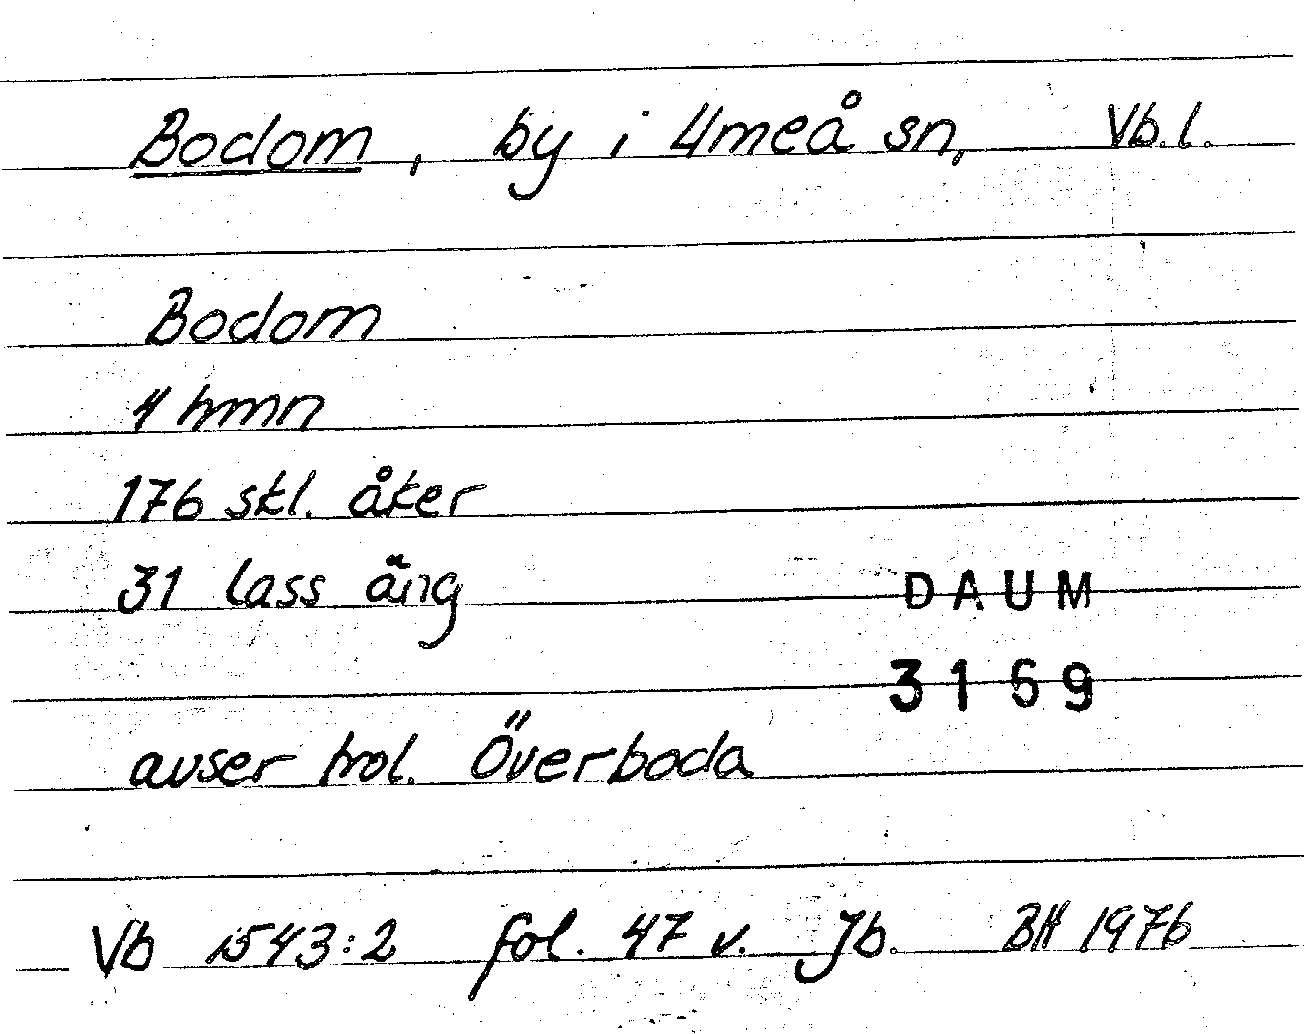 Bodom, by i Umeå sn, Vb.l.
Bodom
4 hmn
176 skl. åker
31 lass äng
DAUM
3169
avser trol. Överboda
Vb 1543:2 fol. 47 v. Jb. BH 1976